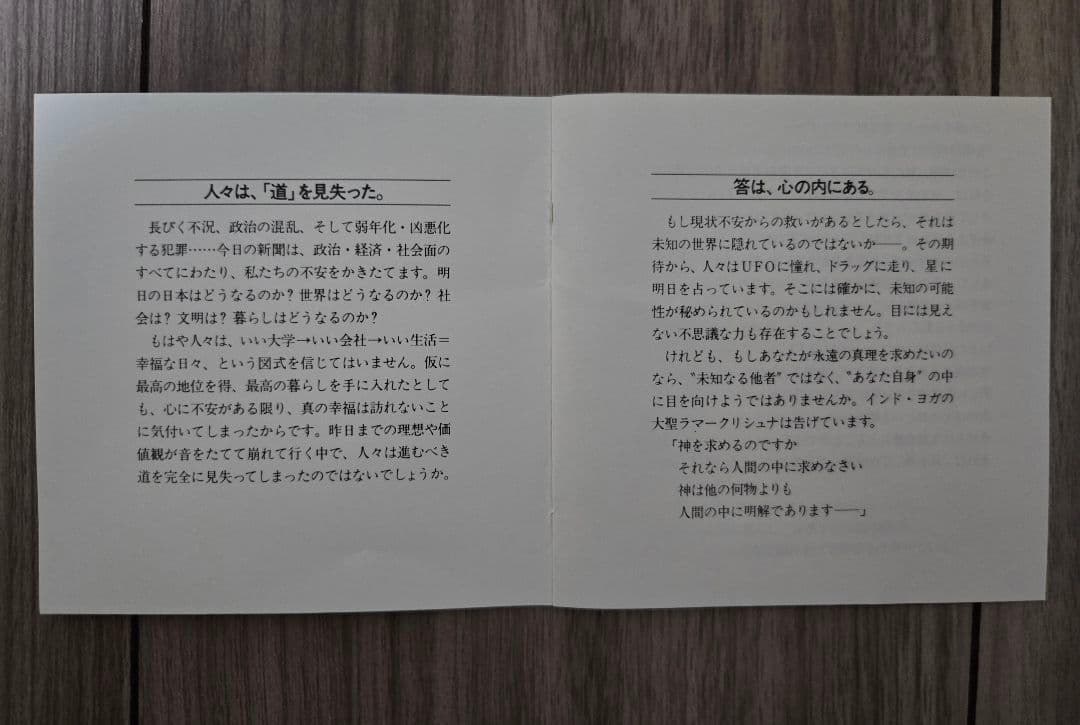 人々は、「道」を見失った。
長びく不況、政治の混乱、そして弱年化・凶悪化
する犯罪……今日の新聞は、政治・経済・社会面の
すべてにわたり、私たちの不安をかきたてます。明
日の日本はどうなるのか？世界はどうなるのか？社
会は？文明は？暮らしはどうなるのか？
もはや人々は、いい大学→いい会社→いい生活＝
幸福な日々、という図式を信じてはいません。仮に
最高の地位を得、最高の暮らしを手に入れたとして
も、心に不安がある限り、真の幸福は訪れないこと
に気付いてしまったからです。昨日までの理想や価
値観が音をたてて崩れて行く中で、人々は進むべき
道を完全に見失ってしまったのではないでしょうか。
答は、心の内にある。
もし現状不安からの救いがあるとしたら、それは
未知の世界に隠れているのではないか――。その期
待から、人々はUFOに憧れ、ドラッグに走り、星に
明日を占っています。そこには確かに、未知の可能
性が秘められているのかもしれません。目には見え
ない不思議な力も存在することでしょう。
けれども、もしあなたが永遠の真理を求めたいの
なら、“未知なる他者”ではなく、“あなた自身”の中
に目を向けようではありませんか。インド・ヨガの
大聖ラマークリシュナは告げています。
「神を求めるのですか
それなら人間の中に求めなさい
神は他の何物よりも
人間の中に明解であります――」